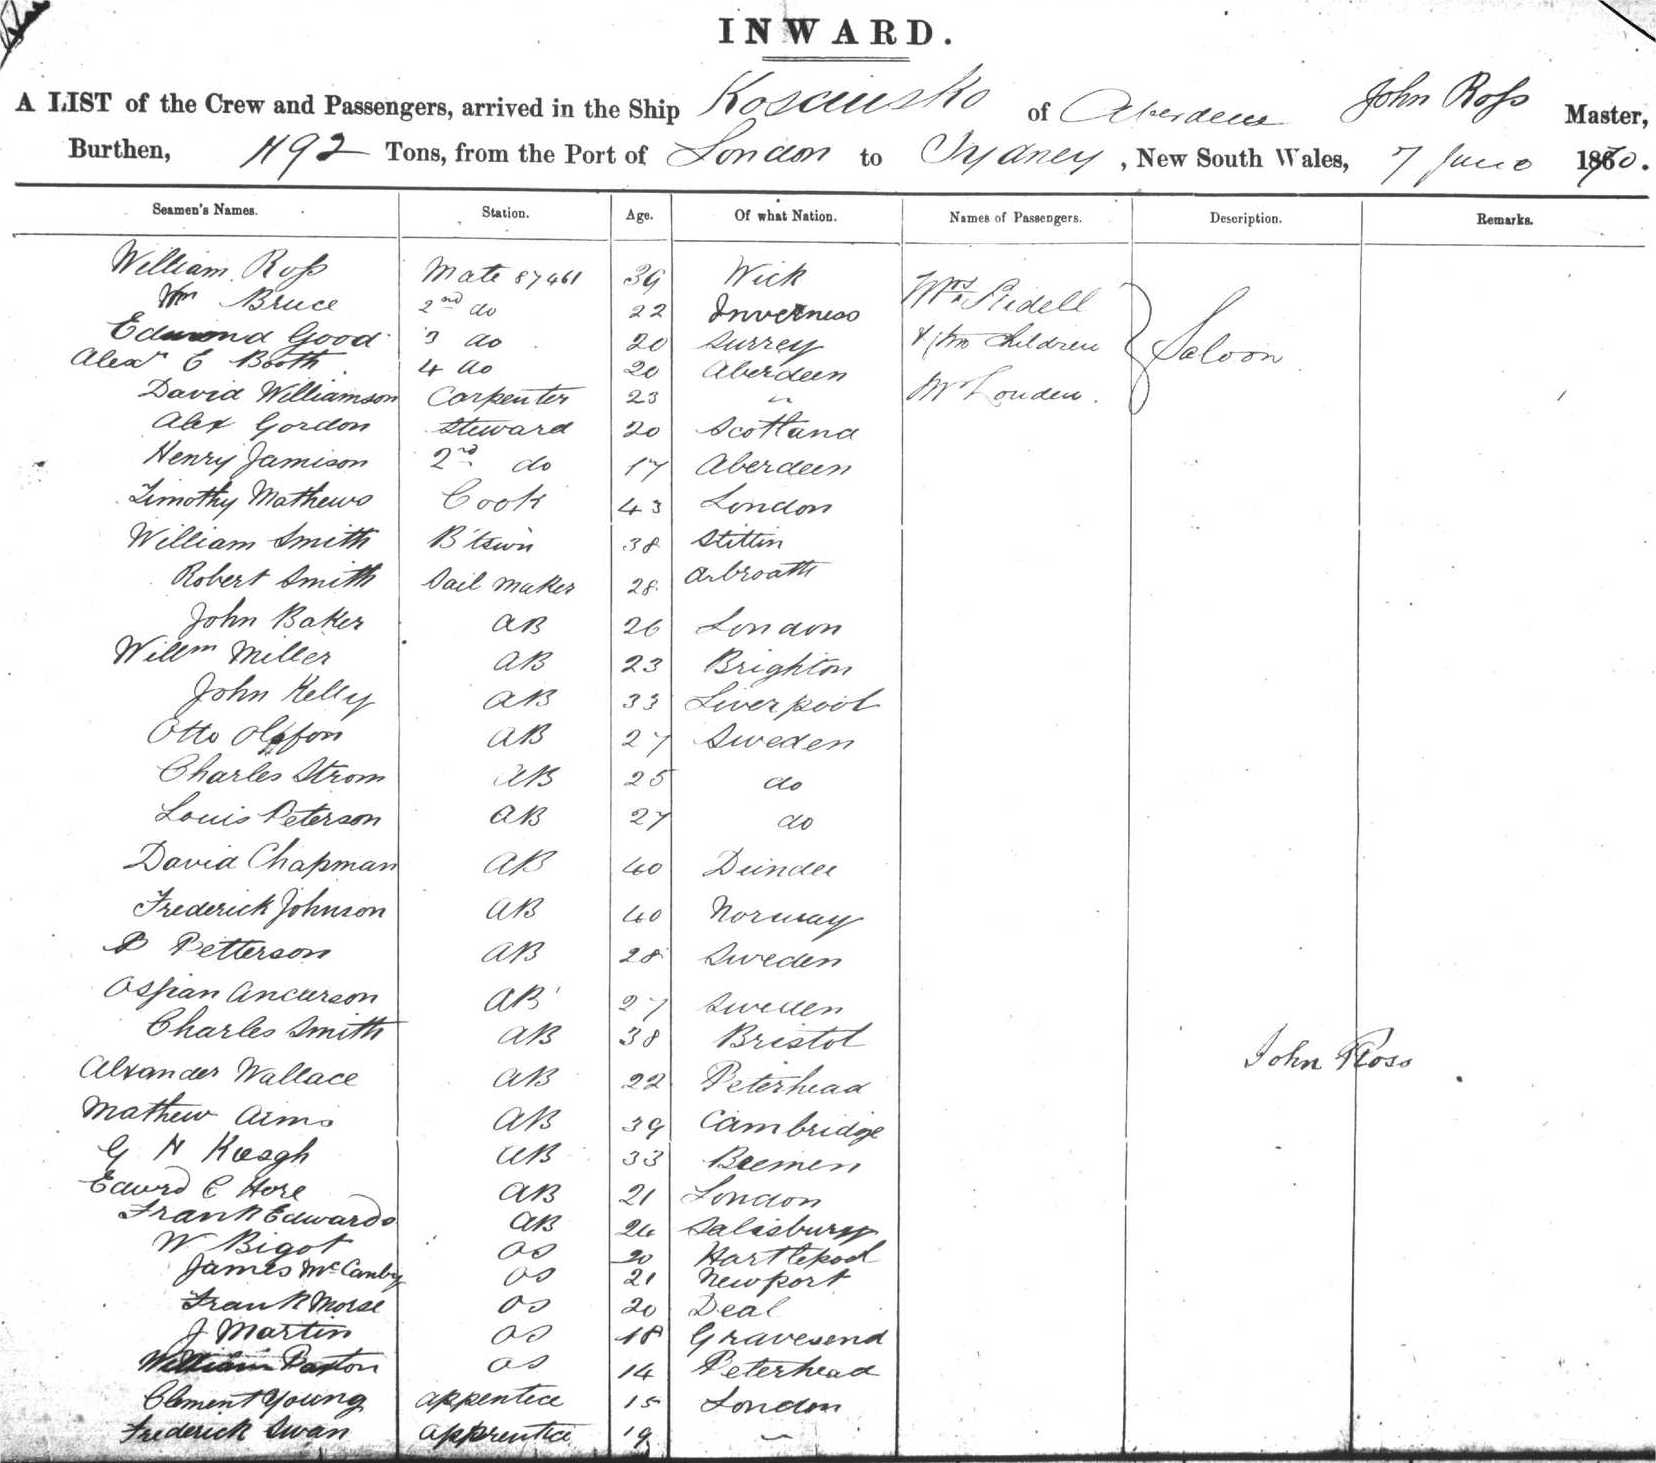 INWARD.
A LIST of the Crew and Passengers, arrived in the Ship Kosciusko of Aberdeen John Ross Master,
Burthen, 1192 Tons, from the Port of London to Sydney, New South Wales, 7 June 1870.
Seamen's Names. Station. Age. Of what Nation. Names of Passengers. Description. Remarks.
William Ross Mate 87461 39 Wick
Wm Bruce 2nd do 22 Inverness Mrs Fridell
Edmond Good 3 do 20 Surrey & children Saloon
Alexr C Booth 4 do 20 Aberdeen
David Williamson Carpenter 23 " Mr Louden.
Alex Gordon Steward 20 Scotland
Henry Jamison 2nd do 17 Aberdeen
Timothy Mathews Cook 43 London
William Smith B'tswn 38 Stittin
Robert Smith Sail Maker 28 Arbroath
John Baker AB 26 London
Willm Miller AB 23 Brighton
John Kelly AB 33 Liverpool
Otto AB 27 Sweden
Charles Strom AB 25 do
Louis Peterson AB 27 do
David Chapman AB 40 Dundee
Frederick Johnson AB 40 Norway
P Petterson AB 28 Sweden
Ossian Anderson AB 27 Sweden
Charles Smith AB 38 Bristol
Alxander Wallace AB 22 Peterhead John Ross
Mathew Aims AB 39 Cambridge
G H Keogh AB 33 Bremen
Edwrd C Hore AB 21 London
Frank Edwards AB 24 Salisbury
W Bigot OS 20 Hartlepool
James McCanby OS 21 Newport
Frank Morse OS 20 Deal
J Martin OS 18 Gravesend
William Paxton OS 14 Peterhead
Clement Young Appentice 15 London
Frederick Swan Apprentice 19 "